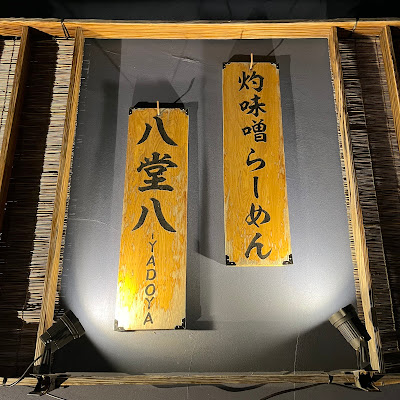 灼味噌らーめん
八堂八
-YADOYA